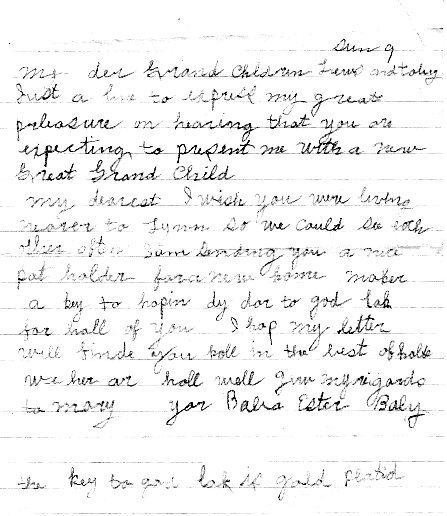 Sun 9
my der Grand Children Lewis and toby
Just a line to express my great
pleasure on hearing that you are
expecting to present me with a new
Great Grand Child
my dearest I wish you were living
nearer to Lynn so we could see each
other often I am sending you a nice
pot holder for a new home maker
a key to hopin dy dor to god lak
for hall of you I hop my letter
will finde you holl in the best of halth
we her ar holl well give my rigards
to mary yor Baba Ester Baby
the key to god lak is gold platid